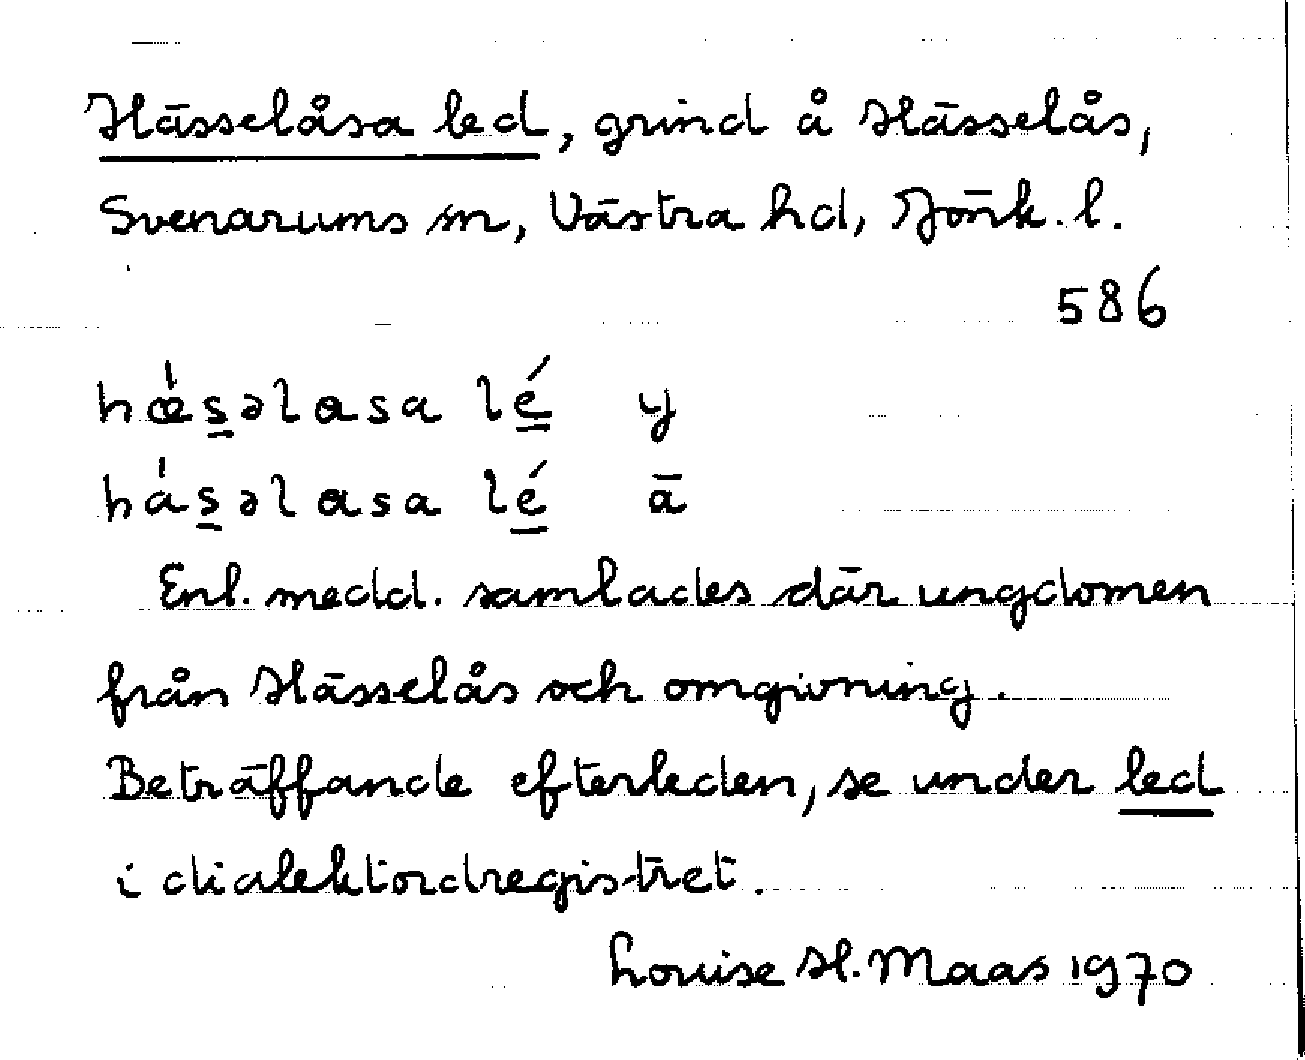 Hässelåsa led, grind å Hässelås,
Svenarums sn, Västra hd, Jönk. l.
586
hæ̀s̲əlasa lé̲ y
hàs̲əlasa lé̲ ä
Enl. medd. samlades där ungdomen
från Hässelås och omgivning.
Beträffande efterleden, se under led
i dialektordregistret.
Louise H. Maas 1970